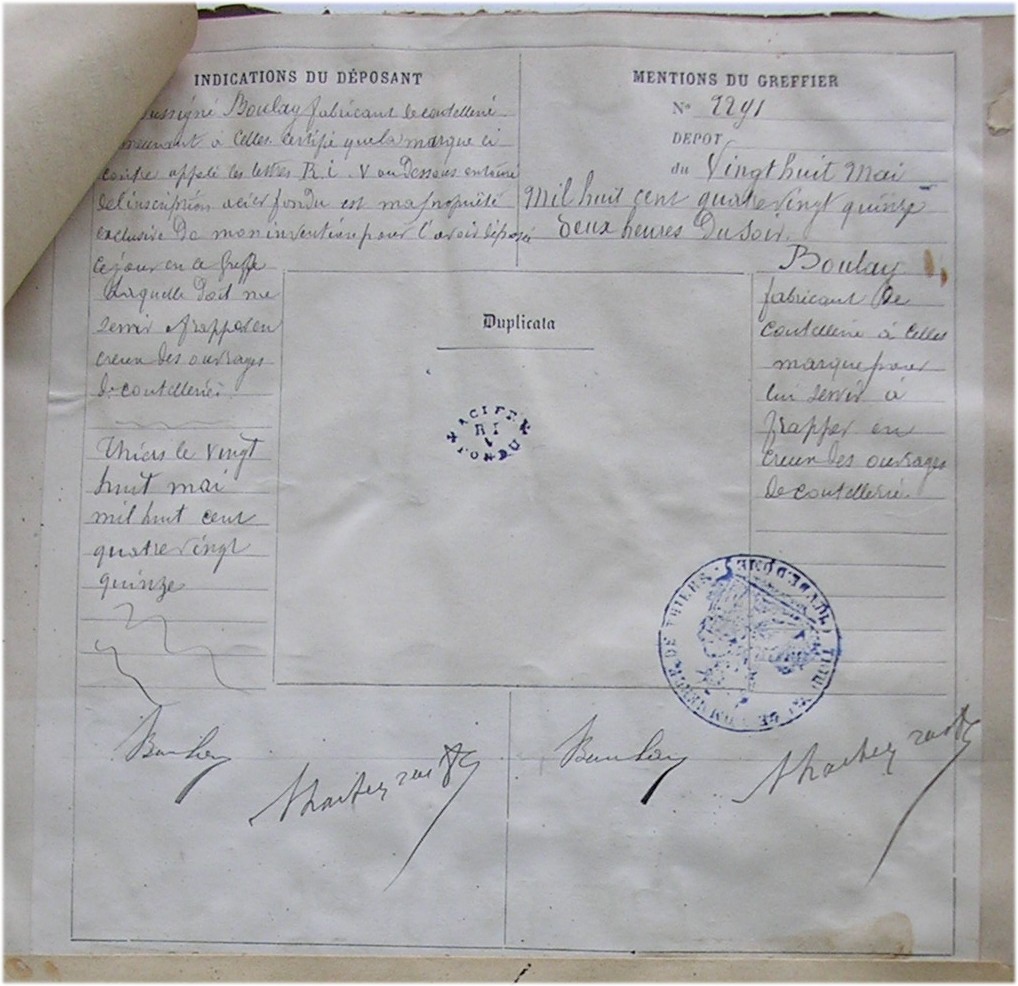 INDICATIONS DU DÉPOSANT
Boulay fabricant de coutellerie
à Celles certifie que la marque ci
contre appelé les lettres R. i. V au Dessous entouré
de l'inscription acier fondu est ma propriété
exclusive De mon invention pour l'avoir déposée
ce jour en ce Greffe
Laquelle Doit me
servir a frapper en
creux des ouvrages
de coutellerie.
Thiers le vingt
huit mai
mil huit cent
quatre vingt
quinze
MENTIONS DU GREFFIER
N° 2241
DEPOT
du Vingt huit Mai
Mil huit cent quatre vingt quinze
deux heures Du Soir.
Boulay
fabricant De
coutellerie à Celles
marque pour
lui servir à
frapper en
creux des ouvrages
de coutellerie.
Duplicata
ACIER
RI
V
FONDU
TRIBUNAL DE COMMERCE DE THIERS (PUY-DE-DÔME)
Boulay
Boulay